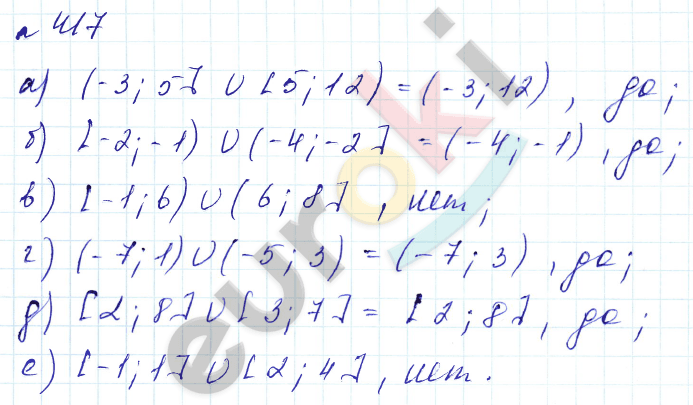 № 417
а) (-3; 5] ∪ [5; 12) = (-3; 12) , да;
б) [-2; -1) ∪ (-4; -2] = (-4; -1) , да;
в) [-1; 6) ∪ (6; 8] , нет;
г) (-7; 1) ∪ (-5; 3) = (-7; 3) , да;
д) [2; 8] ∪ [3; 7] = [2; 8] , да;
е) [-1; 1] ∪ [2; 4] , нет.
euroki